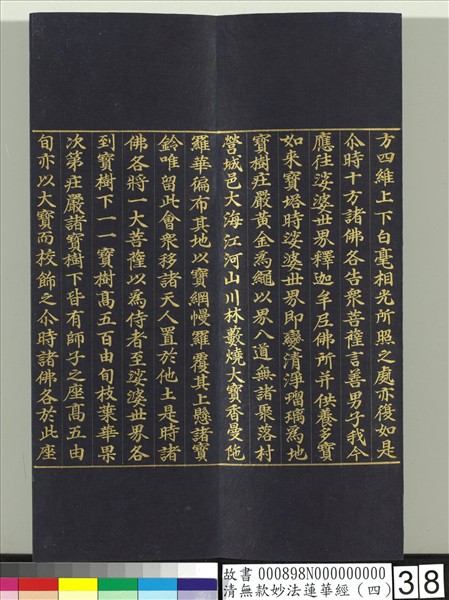 方四維上下白毫相光所照之處亦復如是
尒時十方諸佛各告眾菩薩言善男子我今
應往娑婆世界釋迦牟尼佛所并供養多寶
如來寶塔時娑婆世界即變清淨瑠璃為地
寶樹莊嚴黃金為繩以界八道無諸聚落村
營城邑大海江河山川林藪燒大寶香曼陁
羅華徧布其地以寶網幔羅覆其上懸諸寶
鈴唯留此會眾移諸天人置於他土是時諸
佛各將一大菩薩以為侍者至娑婆世界各
到寶樹下一一寶樹高五百由旬枝葉華果
次第莊嚴諸寶樹下皆有師子之座高五由
旬亦以大寶而校飾之尒時諸佛各於此座
故書 000898N000000000
清無款妙法蓮華經（四）
38